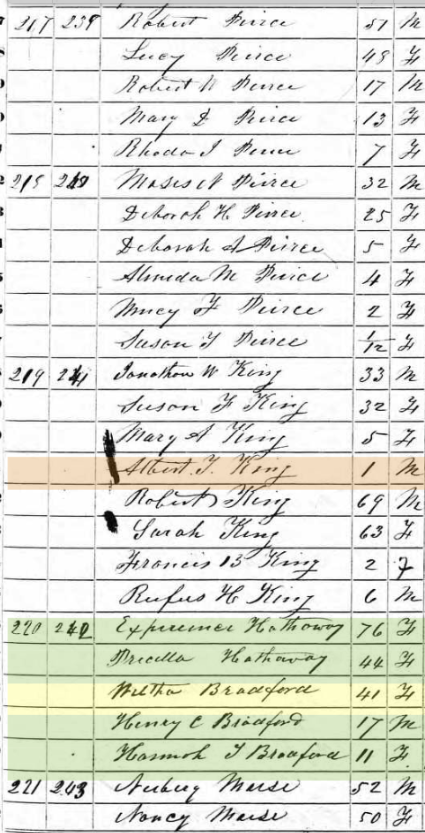 217 239 Robert Peirce 51 M
Lucy Peirce 49 F
Robert W Peirce 17 M
Mary D Peirce 13 F
Rhoda J Peirce 7 F
218 240 Moses N Peirce 32 M
Deborah H Peirce 25 F
Deborah A Peirce 5 F
Almeda M Peirce 4 F
F Peirce 2 F
Susan F Peirce 1/12 F
219 241 Jonathan W King 33 M
Susan F King 32 F
Mary A King 5 F
Albert T. King 1 M
Robert King 69 M
Sarah King 63 F
Francis B King 2 F
Rufus H King 6 M
220 242 Experience Hathaway 76 F
Pricilla Hathaway 44 F
Wiltha Bradford 41 F
Henry C Bradford 17 M
Hannah T Bradford 11 F
221 243 52 M
Nancy 50 F